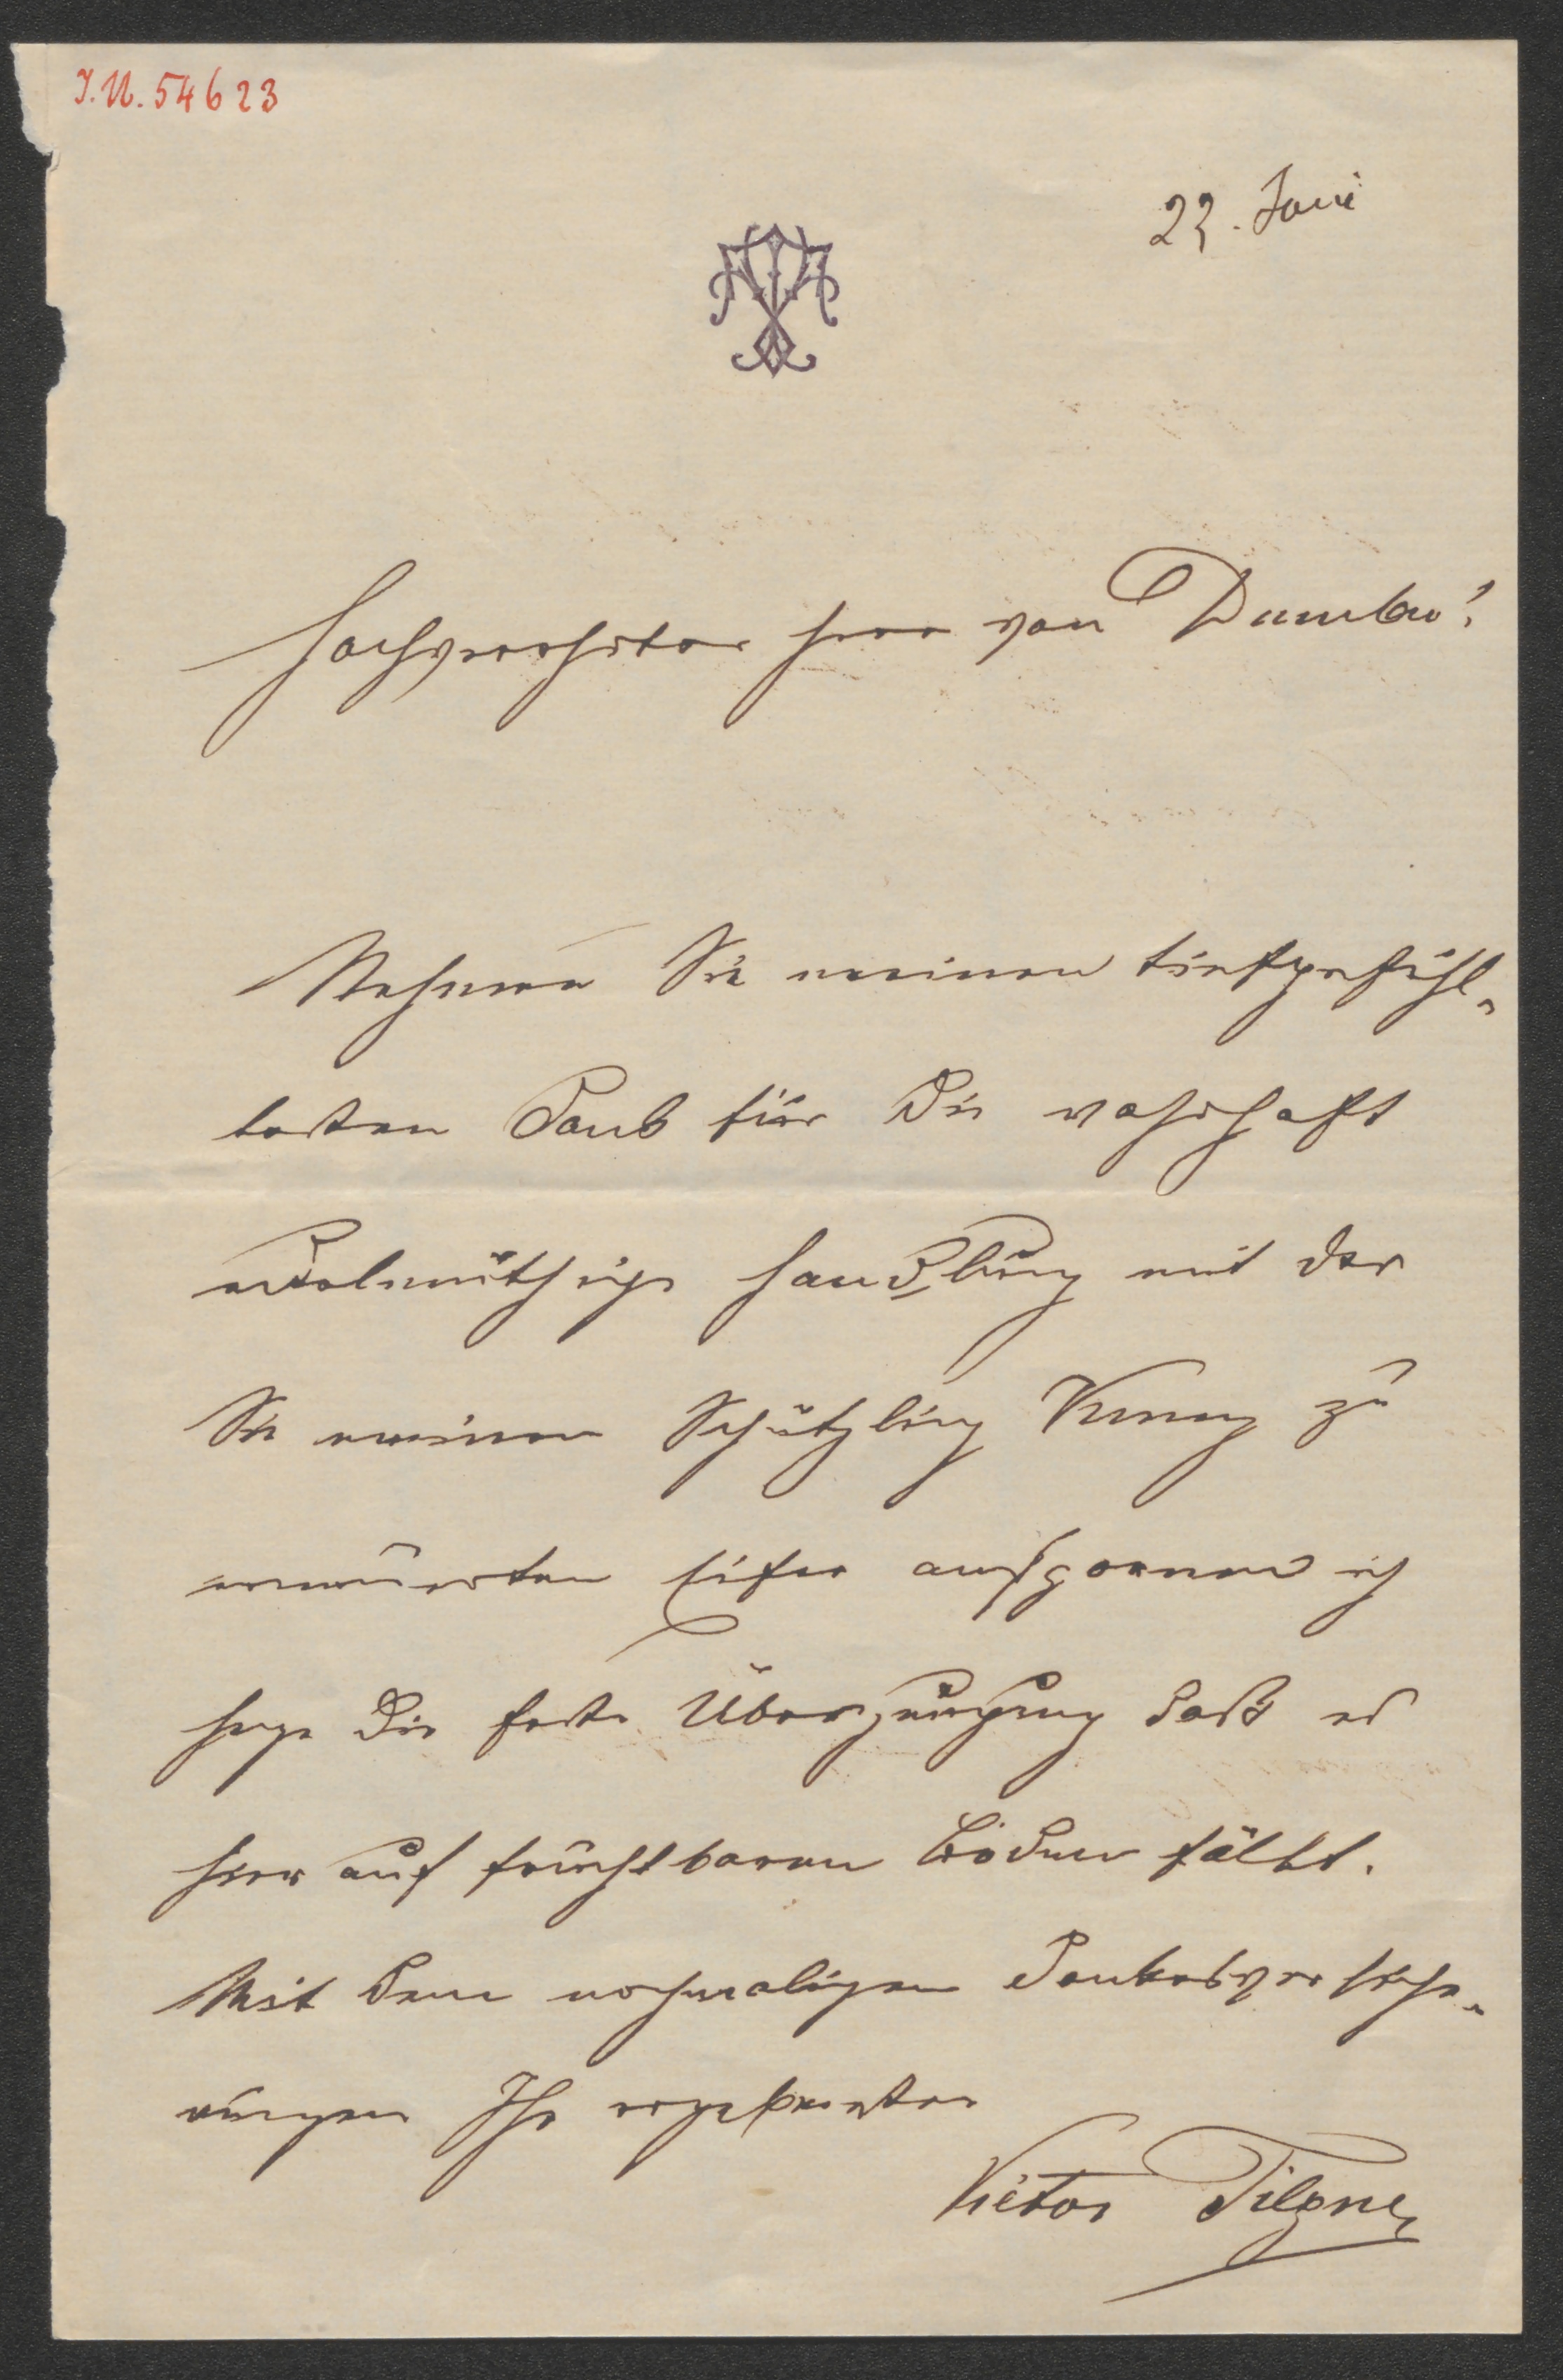 J.N. 54623
23. Juni
Hochverehrter Herr von Dumba!
Nehmen Sie meinen tiefgefühl-
testen Dank für die wahrhaft
edelmüthige Handlung mit der
Sie meinen Schützling Kuny zu
erneuerten Eifer anspornen ich
hege die feste Überzeugung daß es
hier auf fruchtbaren Boden fällt.
Mit den nochmaligen Dankesversiche-
rungen Ihr ergebenster
Victor Tilgner